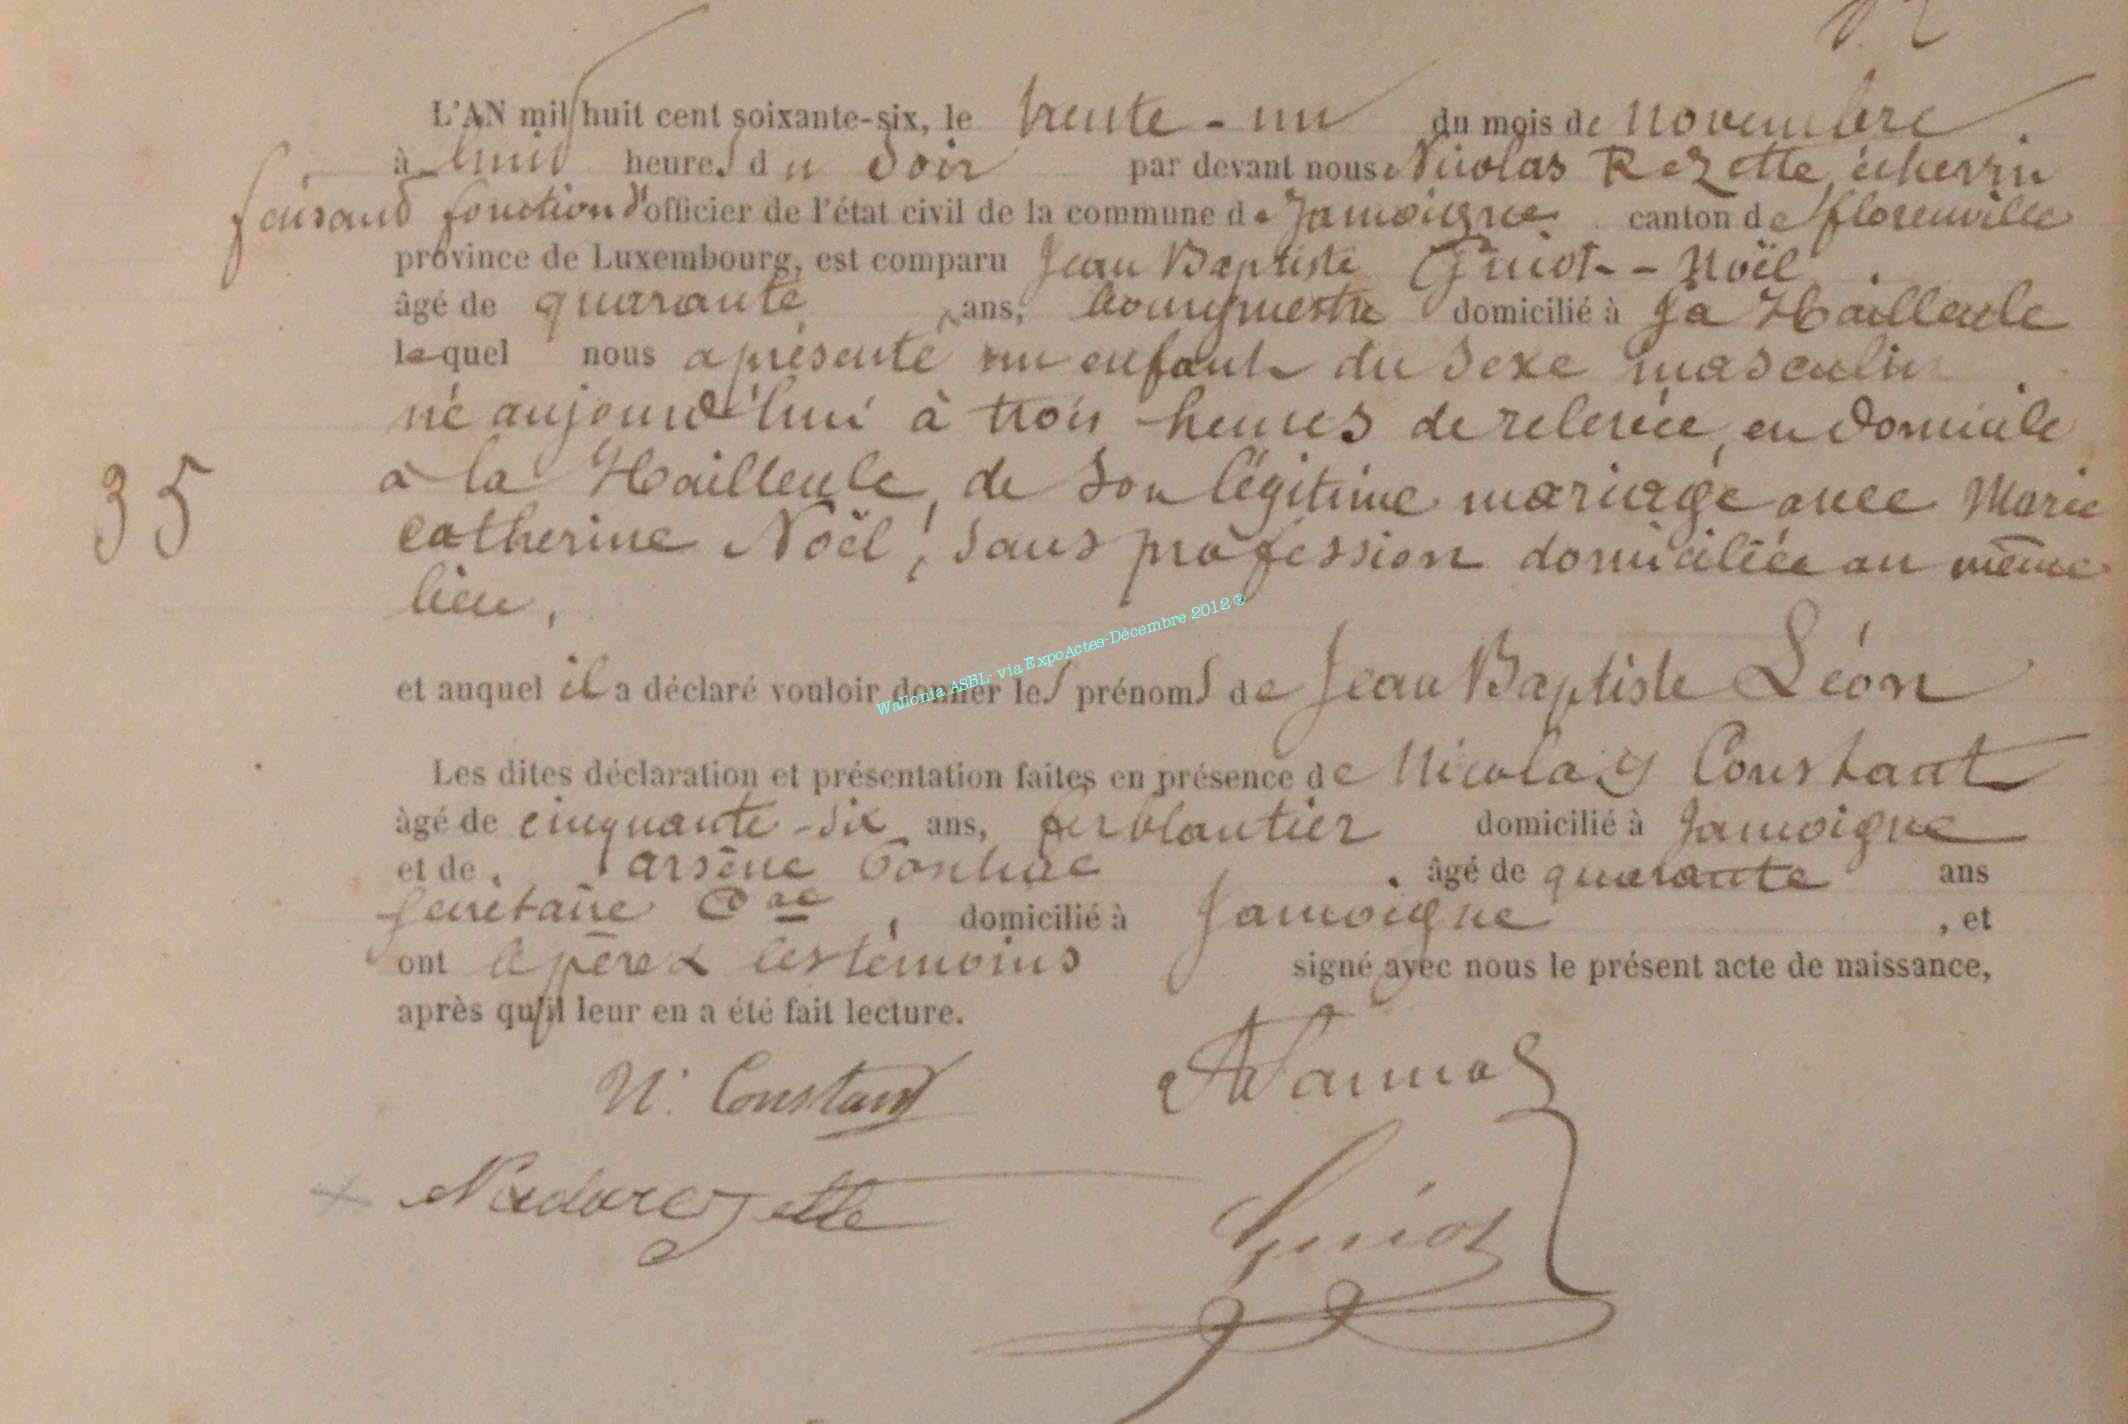 L'AN mil huit cent soixante-six, le trente-un du mois de novembre
à huit heures du Soir par devant nous Nicolas Rezette, échevin
faisant fonction d'officier de l'état civil de la commune de Jamoigne canton de florenville
province de Luxembourg, est comparu Jean Baptiste Guiot--Noël
âgé de quarante ans, bourgmestre domicilié à la Hailleule
lequel nous a présenté un enfant du sexe masculin
né aujourd'hui à trois heures de relevée, en domicile
35
à la Hailleule, de son légitime mariage avec Marie
Catherine Noël, sans profession domiciliée au même
lieu,
Wallonia ASBL- via ExpoActes-Décembre 2012 ®
et auquel il a déclaré vouloir donner les prénoms de Jean Baptiste Léon
Les dites déclaration et présentation faites en présence de Nicolas Constant
âgé de cinquante-six ans, ferblantier domicilié à Jamoigne
et de arsène âgé de quarante ans
secrétaire Cal, domicilié à Jamoigne, et
ont le père & les témoins signé avec nous le présent acte de naissance,
après qu'il leur en a été fait lecture.
N. Constant
Guiot